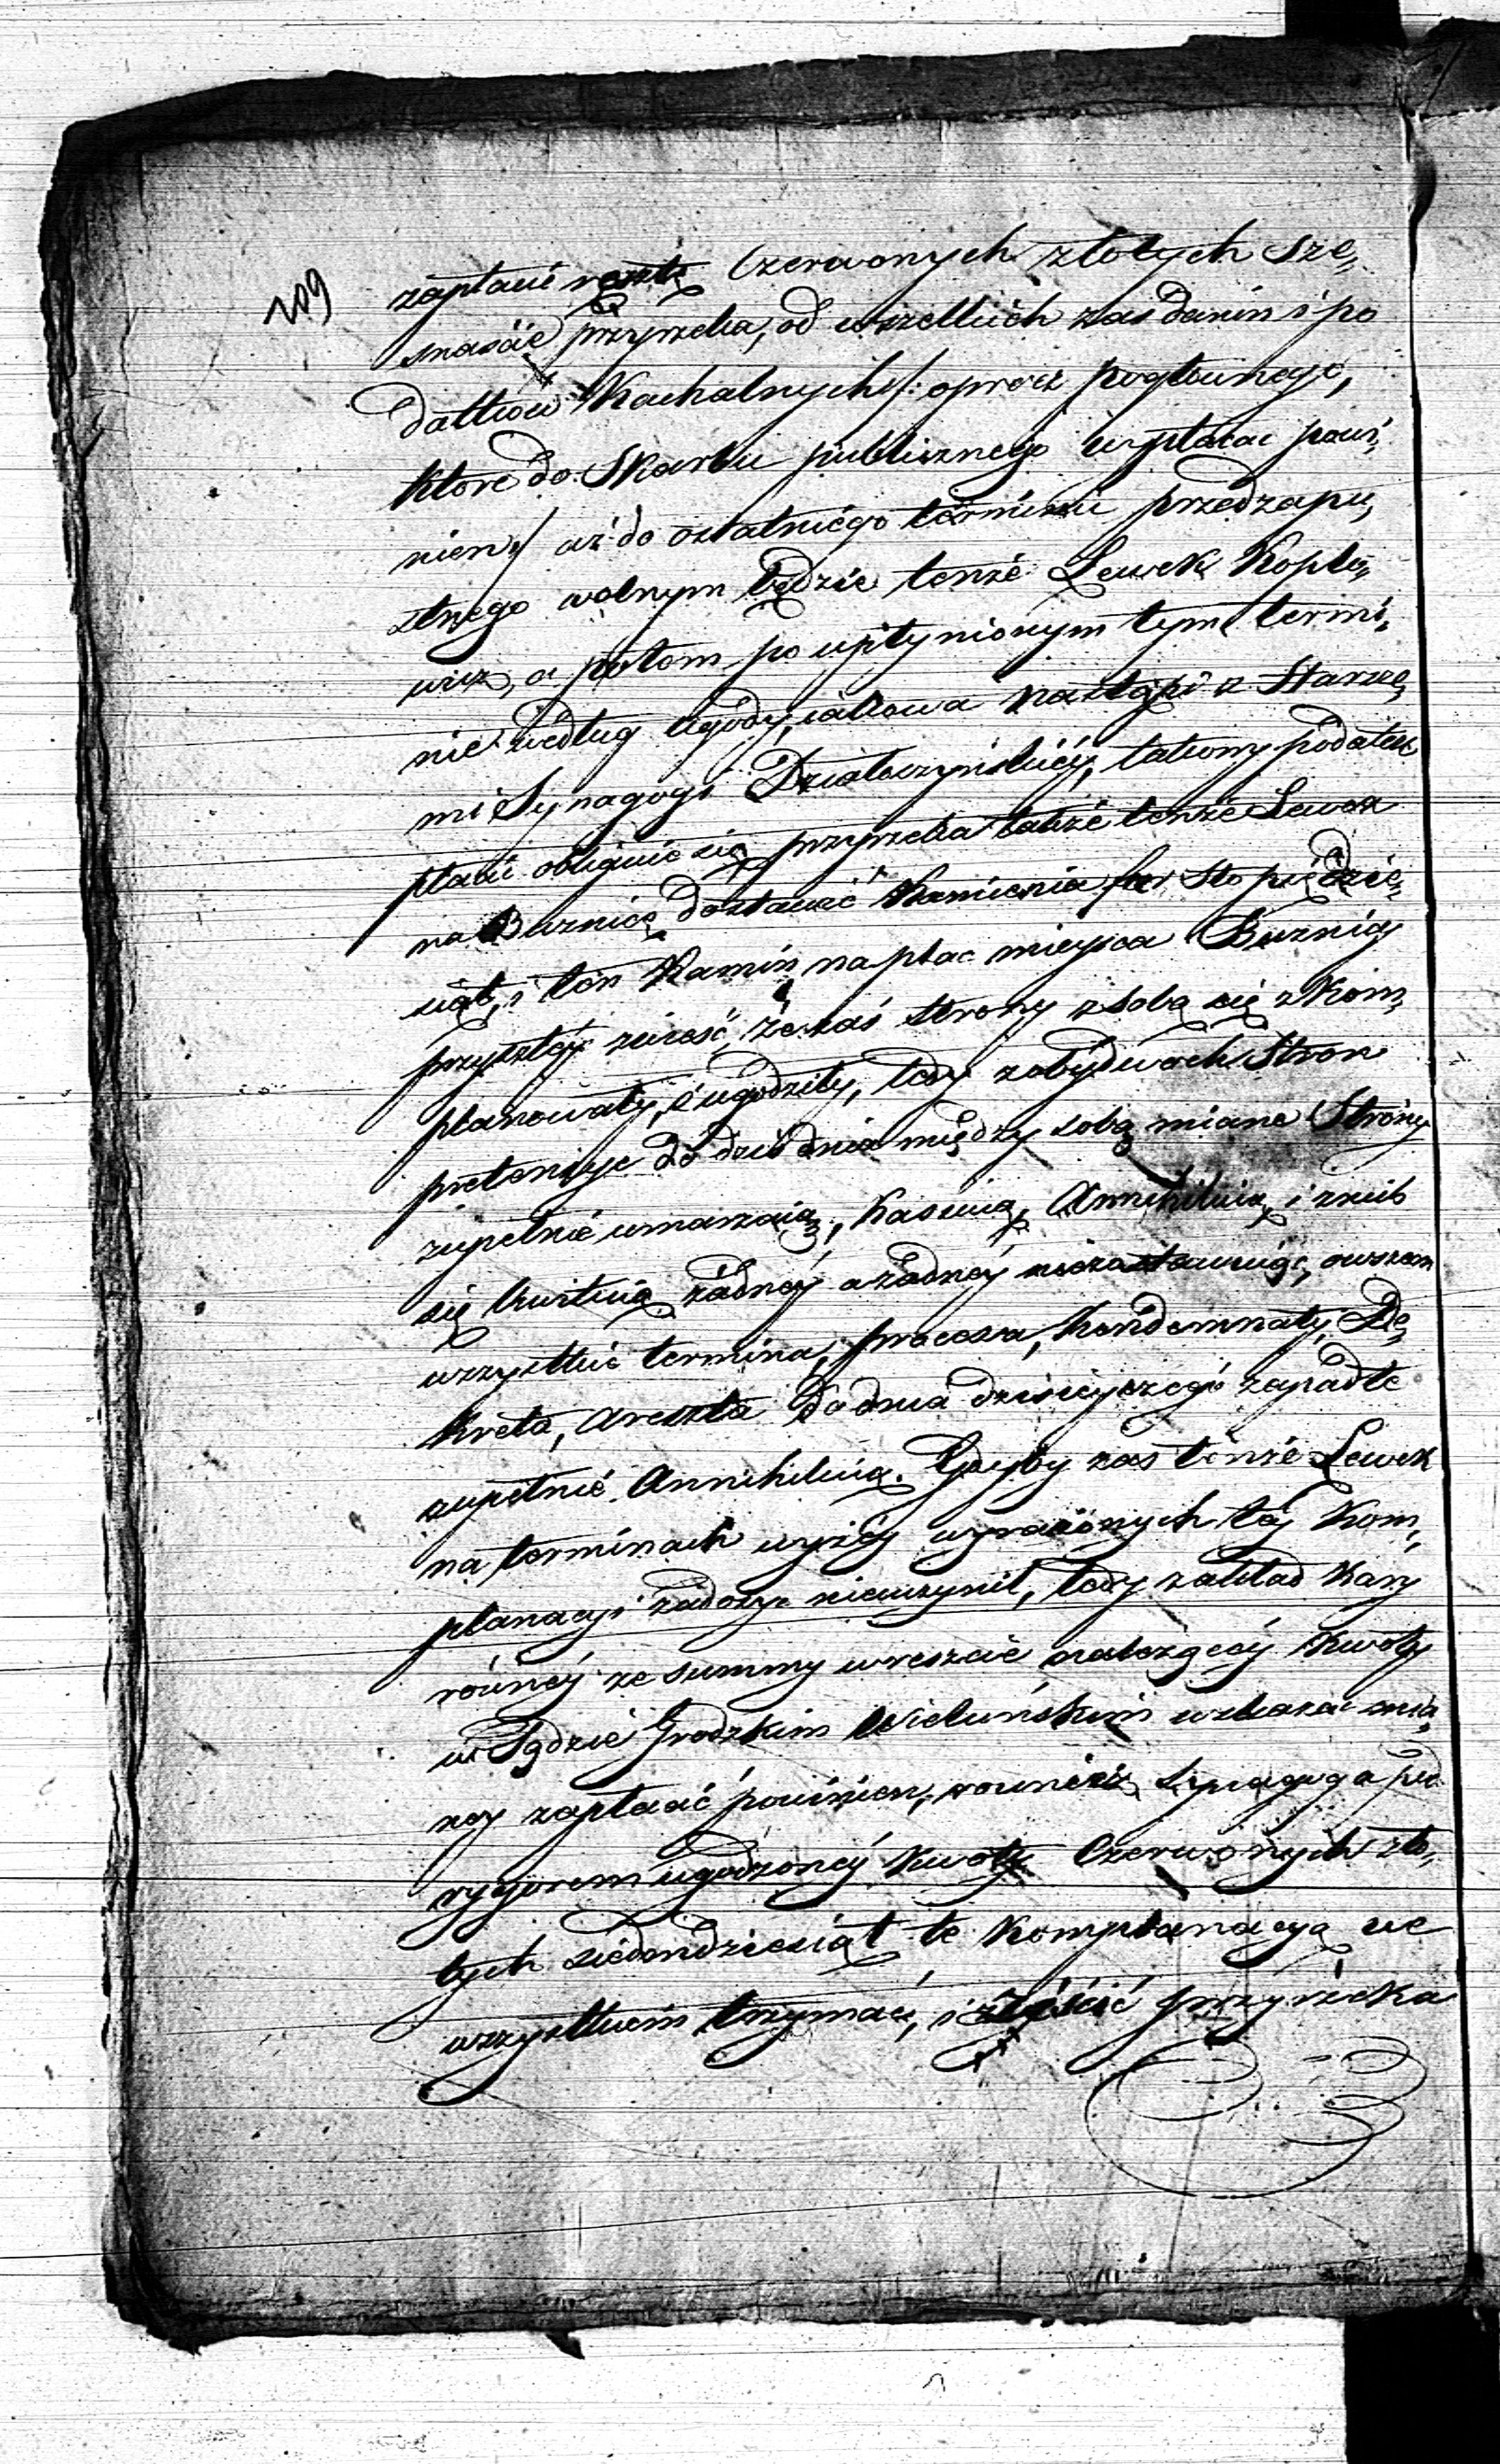 209
zapłacić resztę Czerwonych złotych sze„
snaście przyrzeka, od wszelkich zaś danin i po
datków Kachalnych /: oprócz pogłównego,
ktore do Skarbu publicznego wypłacać powi„
nien :/ aż do ostatniego terminu przedzapu„
stnego wolnym będzie tenże Lewek Koplo„
wicz, a potom po upłynionym tym termi„
nie według ugody, iakowa nastąpi z Starze„
mi Synagogi Działoszyńskiéy, takowy podatek
płacić obliguie się, przyrzeka także tenże Lewek
na Buznicę dostawić Kamienia sto pięćdzie„
siąt, i ten Kamin na plac mieysca Buznicy
przyszłéy zwieść, że zaś strony z sobą się z Kom„
planowały, i ugodziły, tedy z obydwóch Stron
pretensye do dziś dnia między sobą miane Strony
zupełnie umarzaią, Kassuią, Annihiluią, i znich
się kwituią żadnéy a żadnéy niezostawuiąc, owszem
wszystkie termina, processa, Kondemnaty, De„
kreta, Areszta do dnia dzisieyszego zapadłe
zupełnie Annihiluią. Gdyby zaś tenże Lewek
na terminach wyżéy wyrażonych téy Kom„
planacyi zadosyc nieuczynił, tedy zakład Kary
równéy ze summy wreszcie należącéy Kwoty
w Sądzie Grodzkim Wieluńskim wskazać mia„
ney zapłacić powinien, rownież Synagoga pod
rygorem ugodzonéy Kwoty Czerwonych zło„
tych siedmdziesiąt te Komplanacyą we
wszystkiem trzymać, i ziścić przyrzeka